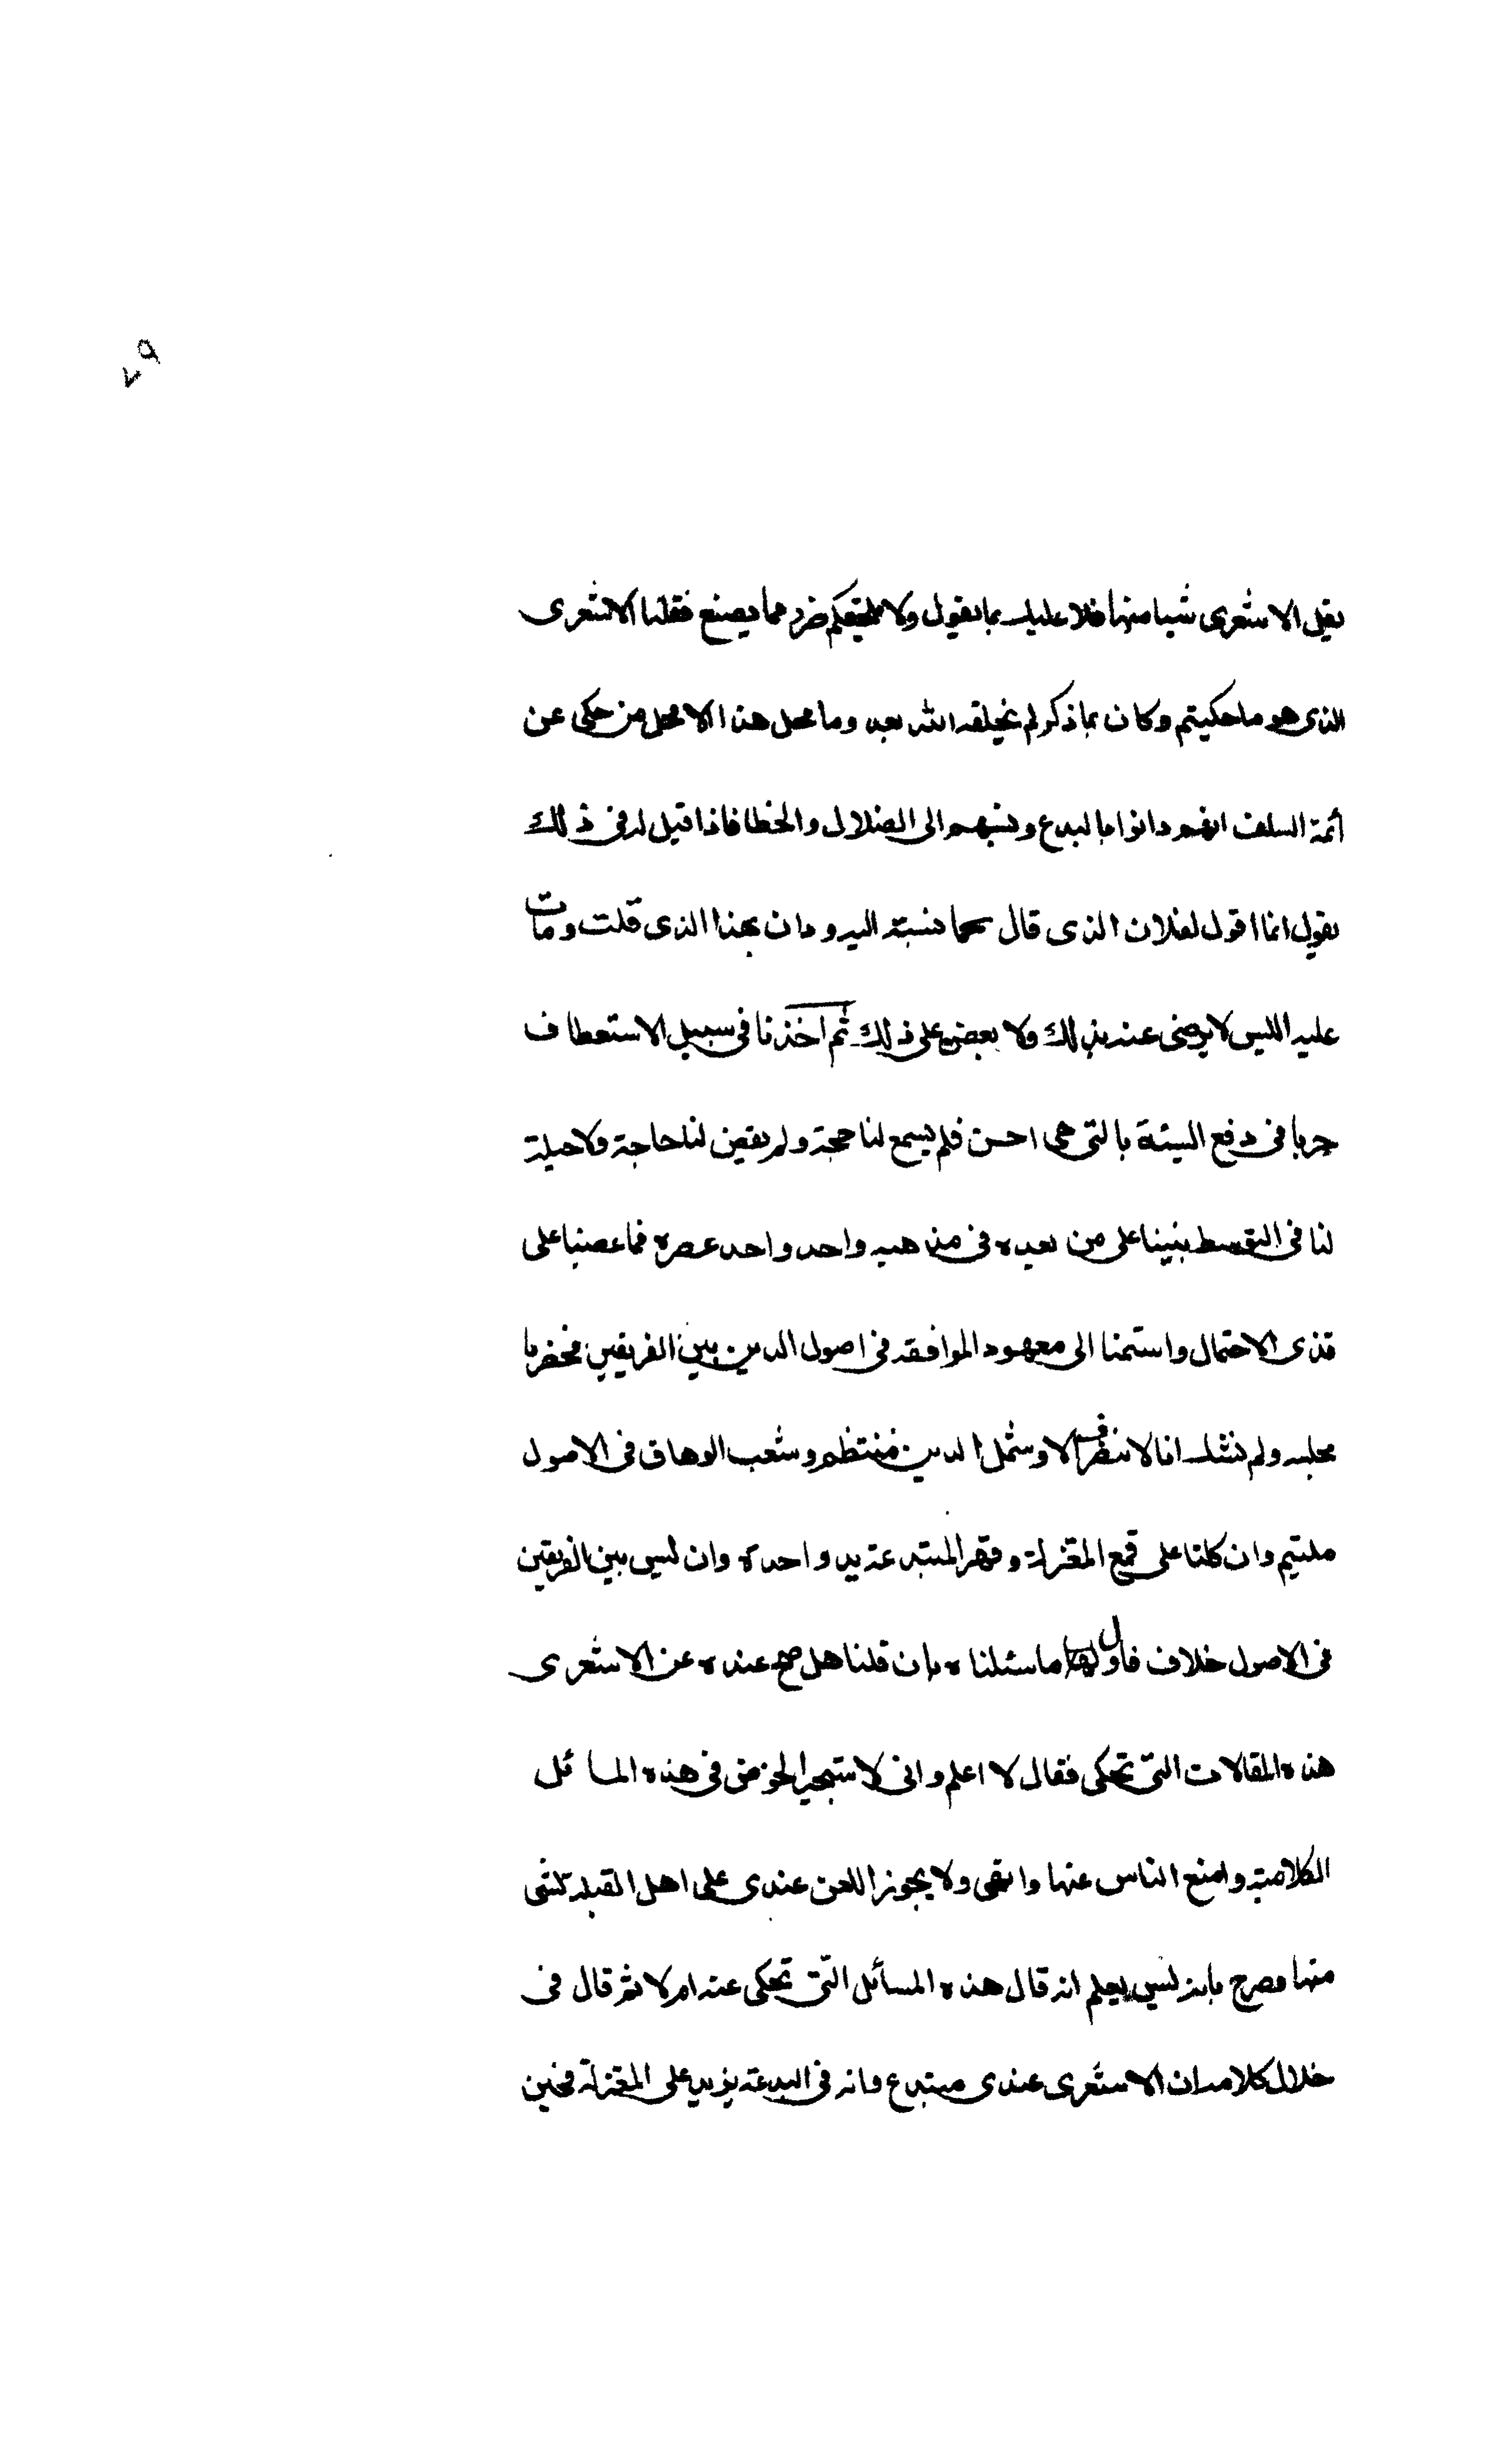 ٧٩
يقل الاشعرى شيا منها فلا عليك بما نقول ولا يلحقكم ضرر مما يصنع فقلنا الاشعرى
الذى هو ما حكيتم وكان بما ذكر لم يخلقه الله بعد وما محل هذا الا محل من حكى عن
أئمة السلف انهم دانوا بالبدع ونسبهم الى الضلال والخطا فاذا قيل له فى ذلك
يقول انما اقول لفلان الذى قال كما نسبته اليه ودان بهذا الذى قلت ومات
عليه اليس لا يرضى عنه بذلك ولا يعضى على ذلك ثم اخذنا فى سبيل الاستعطاف
جريا فى دفع السيئة بالتى هى احسن فلم يسمع لنا حجة ولم يقض لنا حاجة ولا حيلة
لنا فى التوسط بيننا على من بعده فى مذهبه واحد واحد عصره فما عصنبا على
قذى الاحتمال واستمنا الى معهود الموافقه فى اصول الدين بين الفريقين فحضرنا
مجلسه ولم نشك انا لا نفترق الا وشمل الدين منتظم وشعب الوفاق فى الاصول
ملتيم وان كلنا على قمع المعتزلة وقهر المبتدعة يد واحدة وان ليس بين الفريقين
فى الاصول خلاف فاول ما سئلناه بان قلنا هل صح عنده عن الاشعرى
هذه المقالات التى تحكى فقال لا اعلم وانى لا ستجيز الخوض فى هذه المسائل
الكلامية وامنع الناس عنها وانهى ولا يجوز اللعن عندى على اهل القبله لشى
منها وصرح بانه ليس يعلم انه قال هذه المسائل التى تحكى عنه ام لا ثم قال فى
خلال كلامه ان الاشعرى عندى مبتدع وانه فى البدعة يزيد على المعتزلة فحين